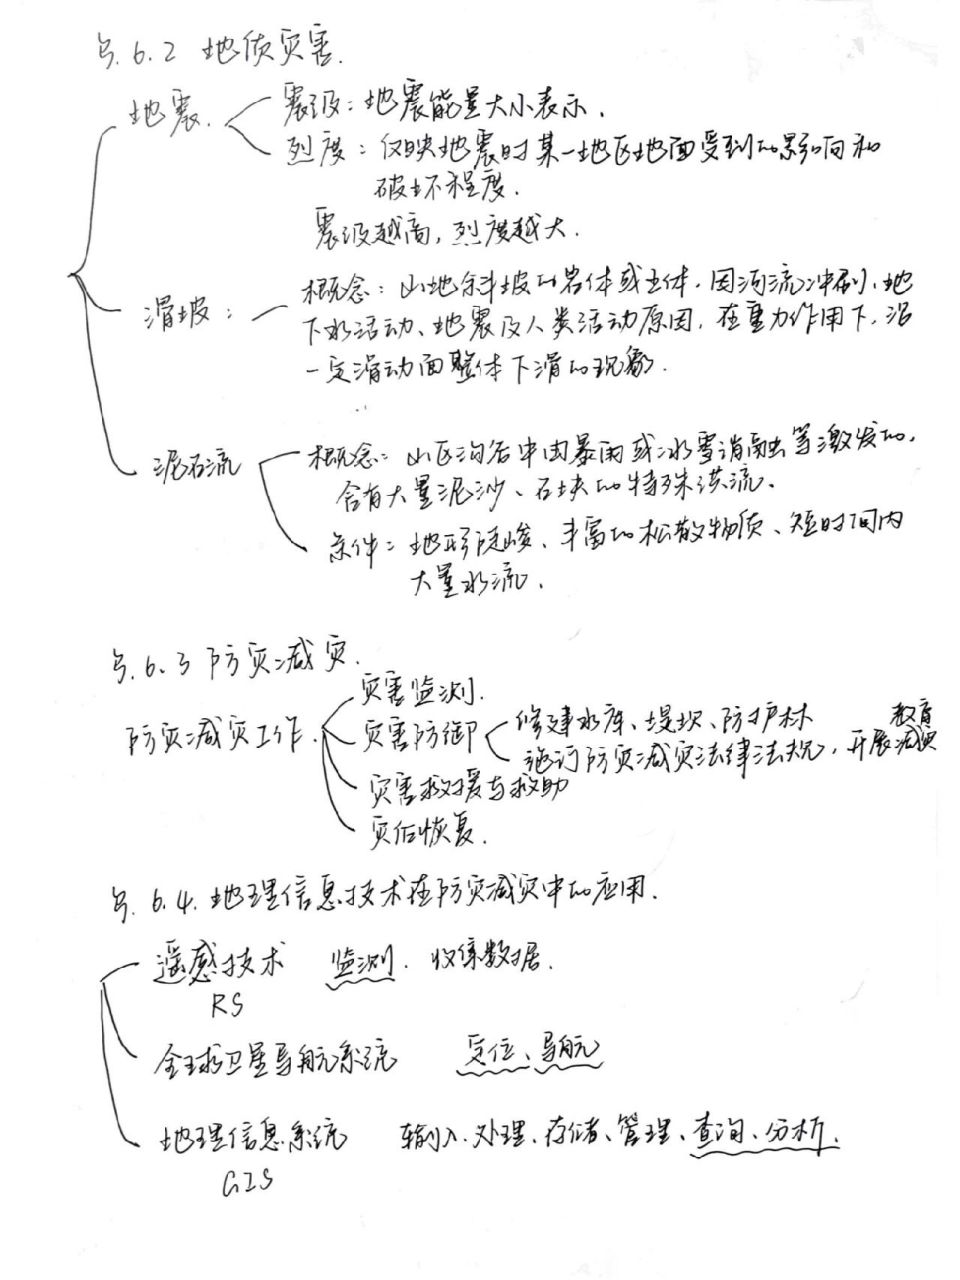 §.6.2 地质灾害.
地震.
震级：地震能量大小表示.
烈度：仅映地震时某一地区地面受到的影响和
破坏程度.
震级越高，烈度越大.
滑坡：
概念：山地斜坡的岩体或土体，因河流冲刷、地
下水活动、地震及人类活动原因，在重力作用下，沿
一定滑动面整体下滑的现象.
泥石流
概念：山区沟谷中由暴雨或冰雪消融等激发的，
含有大量泥沙、石块的特殊洪流.
条件：地形陡峻、丰富的松散物质、短时间内
大量水流.
§.6.3 防灾减灾.
防灾减灾工作.
灾害监测.
灾害防御
修建水库、堤坝、防护林
制订防灾减灾法律法规，开展减灾
教育
灾害救援与救助
灾后恢复.
§.6.4.地理信息技术在防灾减灾中的应用.
遥感技术 监测. 收集数据.
RS
全球卫星导航系统 定位、导航
地理信息系统 输入、处理、存储、管理、查询、分析.
GIS